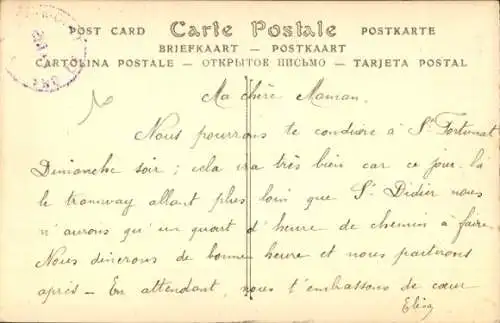 POST CARD Carte Postale POSTKARTE
BRIEFKAART — POSTKAART
CARTOLINA POSTALE — ОТКРЫТОЕ ПИСЬМО — TARJETA POSTAL
Ma chère Maman.
Nous pourrons te conduire à St Fortunat
Dimanche soir ; cela ira très bien car ce jour-là
le tramway allant plus loin que St Didier nous
n'aurons qu'un quart d'heure de chemin à faire.
Nous dînerons de bonne heure et nous partirons
après — En attendant, nous t'embrassons de cœur